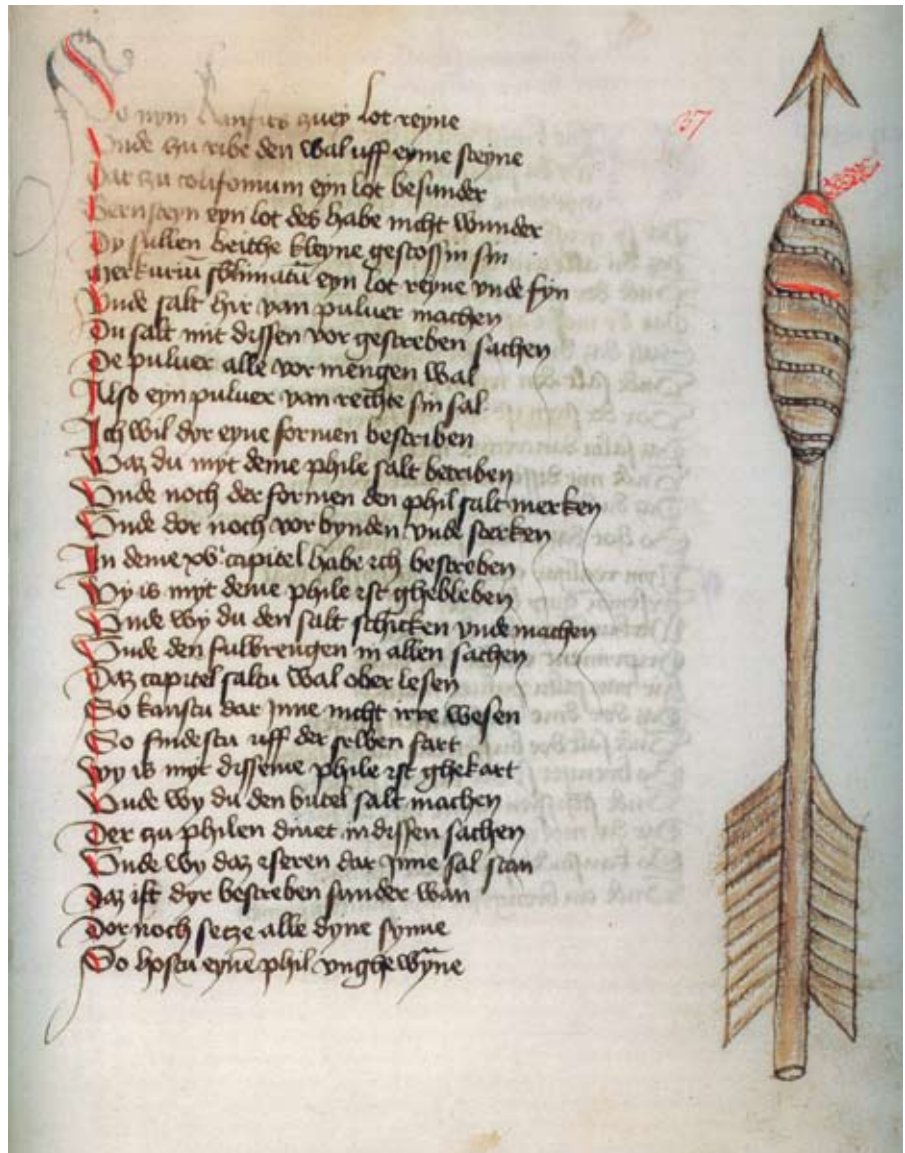 So nym Kanfits zwey lot reyne
Unde zu ribe den wal uff eyme steyne
Dar zu colifonium eyn lot besunder
Bernsteyn eyn lot des habe nicht wunder
Dy sullen beithe kleyne gestossin sin
Merkuriū sblimatū eyn lot reyne vnde fyn
Vnde salt hir van puluer machen
Du salt mit dissen vor gescreben sachen
De puluer alle vor mengen wal
Also eyn puluer van rechte sin sal
Ich wil dor eyne formen bescriben
Waz du myt deme phile salt betriben
Vnde noch der formen den phil salt merken
Vnde dor noch vor bynden vnde sterken
In deme xv. capitel habe ich bescreben
Wy is myt deme phile ist ghebleben
Vnde wy du den salt schicken vnde machen
Vnde den fulbrengen in allen sachen
Daz capitel saltu wal ober lesen
So kanstu dar Inne nicht irre wesen
So findestu uff der selben fart
Wy is myt disseme phile ist ghekart
Vnde wy du den butel salt machen
Der zu philen dinet in dissen sachen
Vnde wy daz eseren dar Inne sal stan
Daz ist dyr bescreben sunder wan
Dor noch setze alle dyne synne
So hastu eynē phil vnghewȳne
37